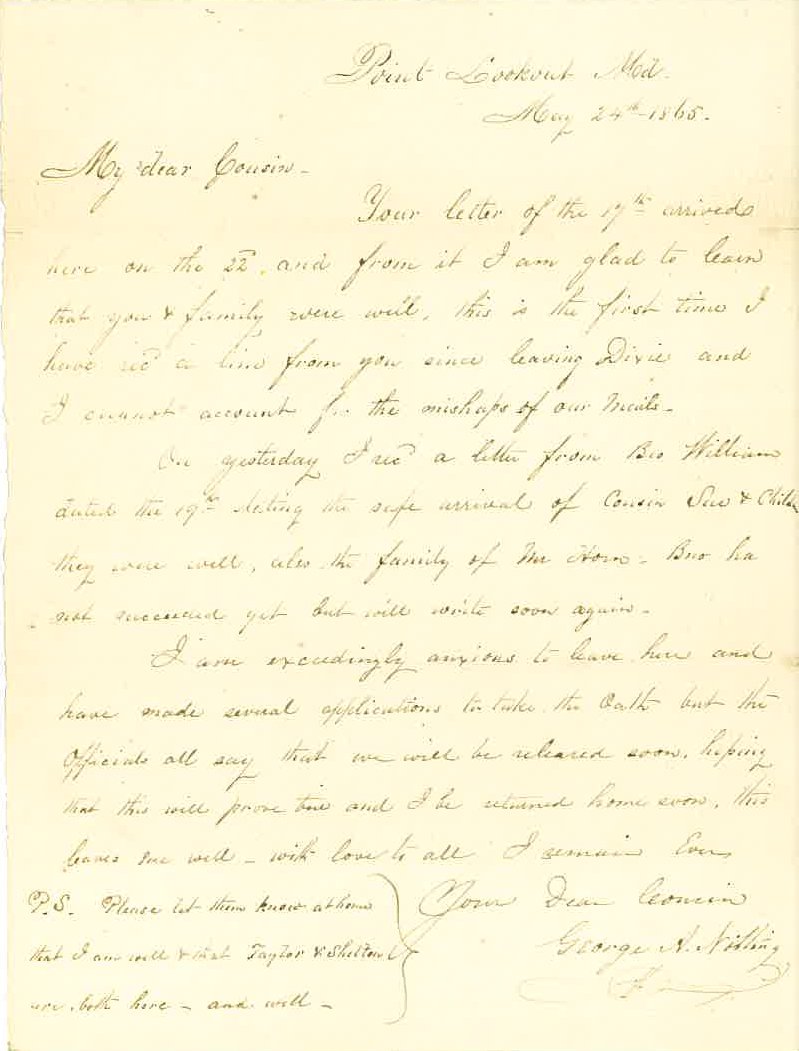 Point Lookout Md.
May 24th 1865.
My dear Cousin -
Your letter of the 17th arrived
here on the 22d, and from it I am glad to learn
that you & family were well, this is the first time I
have recd a line from you since leaving Dixie and
I cannot account for the mishaps of our Mails -
On yesterday I recd a letter from Bro William
dated the 19th stating the safe arrival of Cousin Sue & Child
they were well, also the family of Mr Horn - Bro ha
not succeeded yet but will write soon again -
I am exceedingly anxious to leave here and
have made several applications to take the Oath but the
Officials all say that we will be released soon, hoping
that this will prove true and I be returned home soon, this
leaves me well - with love to all I remain Ever
Your Dear Cousin
George A. Notting
P.S. Please let them know at home
that I am well & that Taylor & Shelton
are both here - and well -